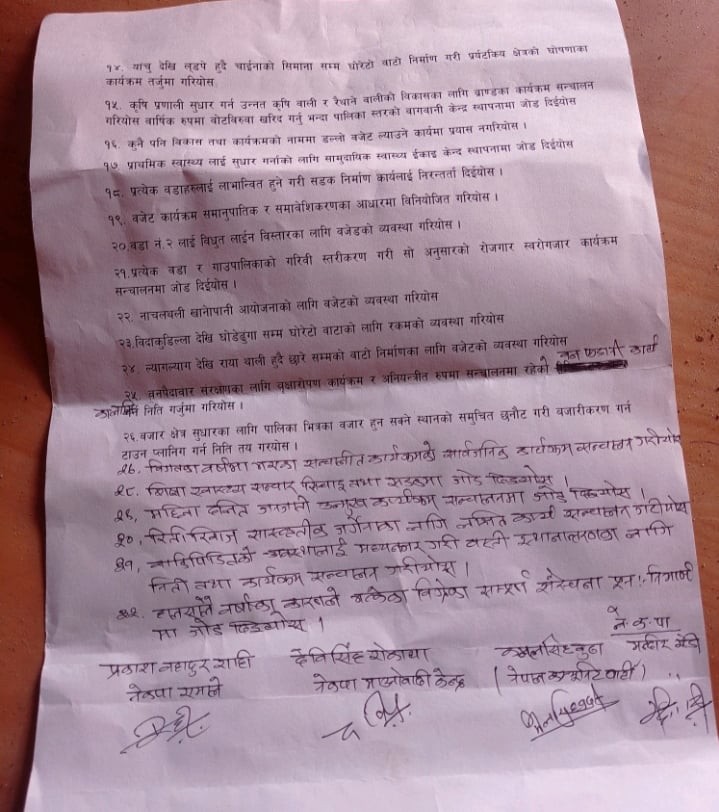 १४. यांचु देखि लडपे हुदै चाईनाको सिमाना सम्म घोरेटो वाटो निर्माण गरी पर्यटकिय क्षेत्रको घोषणाका
कार्यक्रम तर्जुमा गरियोस
१५. कृषि प्रणाली सुधार गर्न उन्नत कृषि वाली र रैथाने वालीको विकासका लागि व्राण्डका कार्यक्रम सन्चालन
गरियोस वार्षिक रुपमा वोटविरुवा खरिद गर्नु भन्दा पालिका स्तरको वागवानी केन्द्र स्थापनामा जोड दिईयोस
१६. कुनै पनि विकास तथा कार्यक्रमको नाममा डल्लो वजेट ल्याउने कार्यमा प्रयास नगरियोस ।
१७ प्राथमिक स्वास्थ्य लाई सुधार गर्नाको लागि सामुदायिक स्वास्थ्य ईकाइ केन्द स्थापनामा जोड दिईयोस
१८. प्रत्येक वडाहरुलाई लाभान्वित हुने गरी सडक निर्माण कार्यलाई निरन्तर्ता दिईयोस ।
१९. वजेट कार्यक्रम समानुपातिक र समावेशिकरणका आधारमा विनियोजित गरियोस ।
२०.वडा नं.२ लाई विधुत लाईन विस्तारका लागि वजेडको व्यवस्था गरियोस ।
२१.प्रत्येक वडा र गाउपालिकाको गरिवी स्तरीकरण गरी सो अनुसारको रोजगार स्वरोगजार कार्यक्रम
सन्चालनमा जोड दिईयोस ।
२२. नाचलथली खानेपानी आयोजनाको लागि वजेटको व्यवस्था गरियोस
२३.विदाकुडिल्ला देखि घोडेढुंगा सम्म घोरेटो वाटाको लागि रकमको व्यवस्था गरियोस
२४. ल्यागल्याग देखि राया थाली हुदै छारे सम्मको वाटो निर्माणका लागि वजेटको व्यवस्था गरियोस
२५ वनपैदावार संरक्षणका लागि वृक्षारोपण कार्यक्रम र अनियन्त्रीत रुपमा सन्चालनमा रहेको वन फडानी कार्य
निति गर्जुमा गरियोस ।
२६.वजार क्षेत्र सुधारका लागि पालिका भित्रका वजार हुन सक्ने स्थानको समुचित छनौट गरी वजारीकरण गर्न
टाउन प्लानिग गर्न निति तय गरयोस ।
२७. विगतका वर्षमा सन्चालीत कार्यक्रमको सार्वजनिक कार्यक्रम सन्चालन गरीयोस
२८. शिक्षा स्वास्थ्य सन्चार सिचाइ तथा सडकमा जोड दिइयोस ।
२९, महिला दलित जनजाती उन्मुख कार्यक्रम सन्चालनमा जोड दिइयोस ।
३०, रितीरिवाज सास्कृतीक लागि कार्य सन्चालन गरीयोस
३१, लाई मध्यनजर गरी वस्ती स्थानान्तरणका लागि
निती तथा कार्यक्रम सन्चालन गरीयोस ।
३२. वर्षाका कारणले विग्रेका सम्पूर्ण संरचना पुन: निर्माण
मा जोड दिइयोस ।
ने.क.पा
प्रकाश वहादुर शाही देविसिंह रोकाया
नेकपा एमाले नेकपा माओवादी केन्द्र